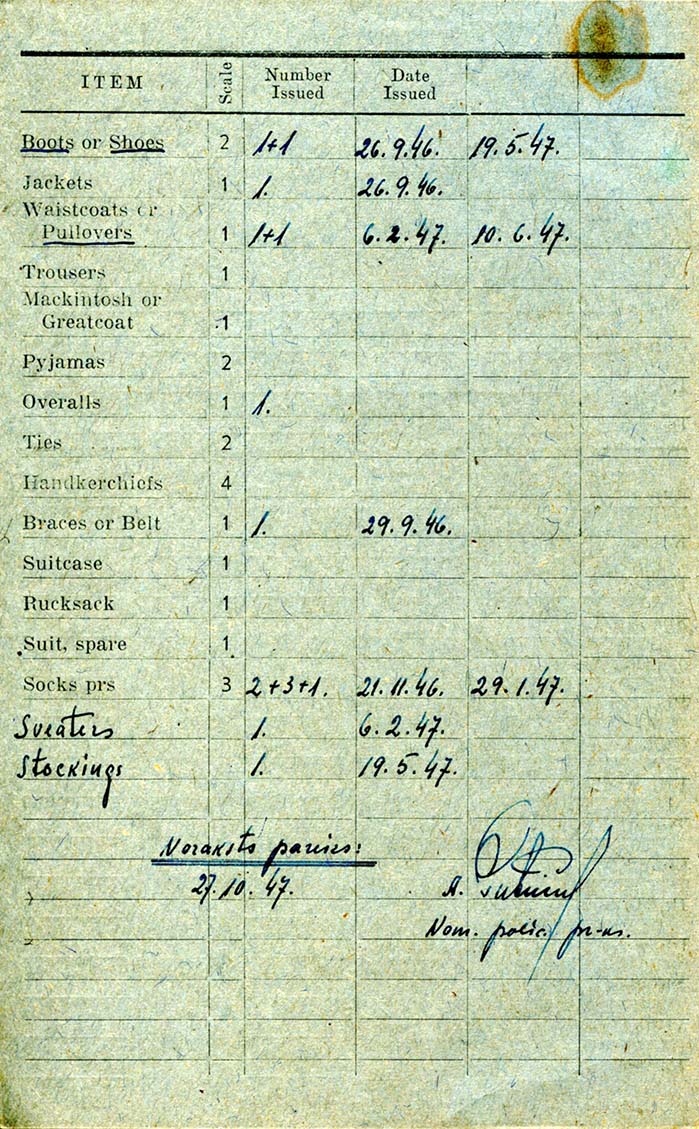 ITEM Scale Number Issued Date Issued
Boots or Shoes 2 1+1 26.9.46. 19.5.47.
Jackets 1 1. 26.9.46.
Waistcoats or
Pullovers 1 1+1 6.2.47. 10.6.47.
Trousers 1
Mackintosh or
Greatcoat 1
Pyjamas 2
Overalls 1 1.
Ties 2
Handkerchiefs 4
Braces or Belt 1 1. 29.9.46.
Suitcase 1
Rucksack 1
Suit, spare 1
Socks prs 3 2+3+1. 21.11.46. 29.1.47.
Sveaters 1. 6.2.47.
Stockings 1. 19.5.47.
Noraksts pareizs:
27.10.47. A.
Nom. polic. pr-ks.